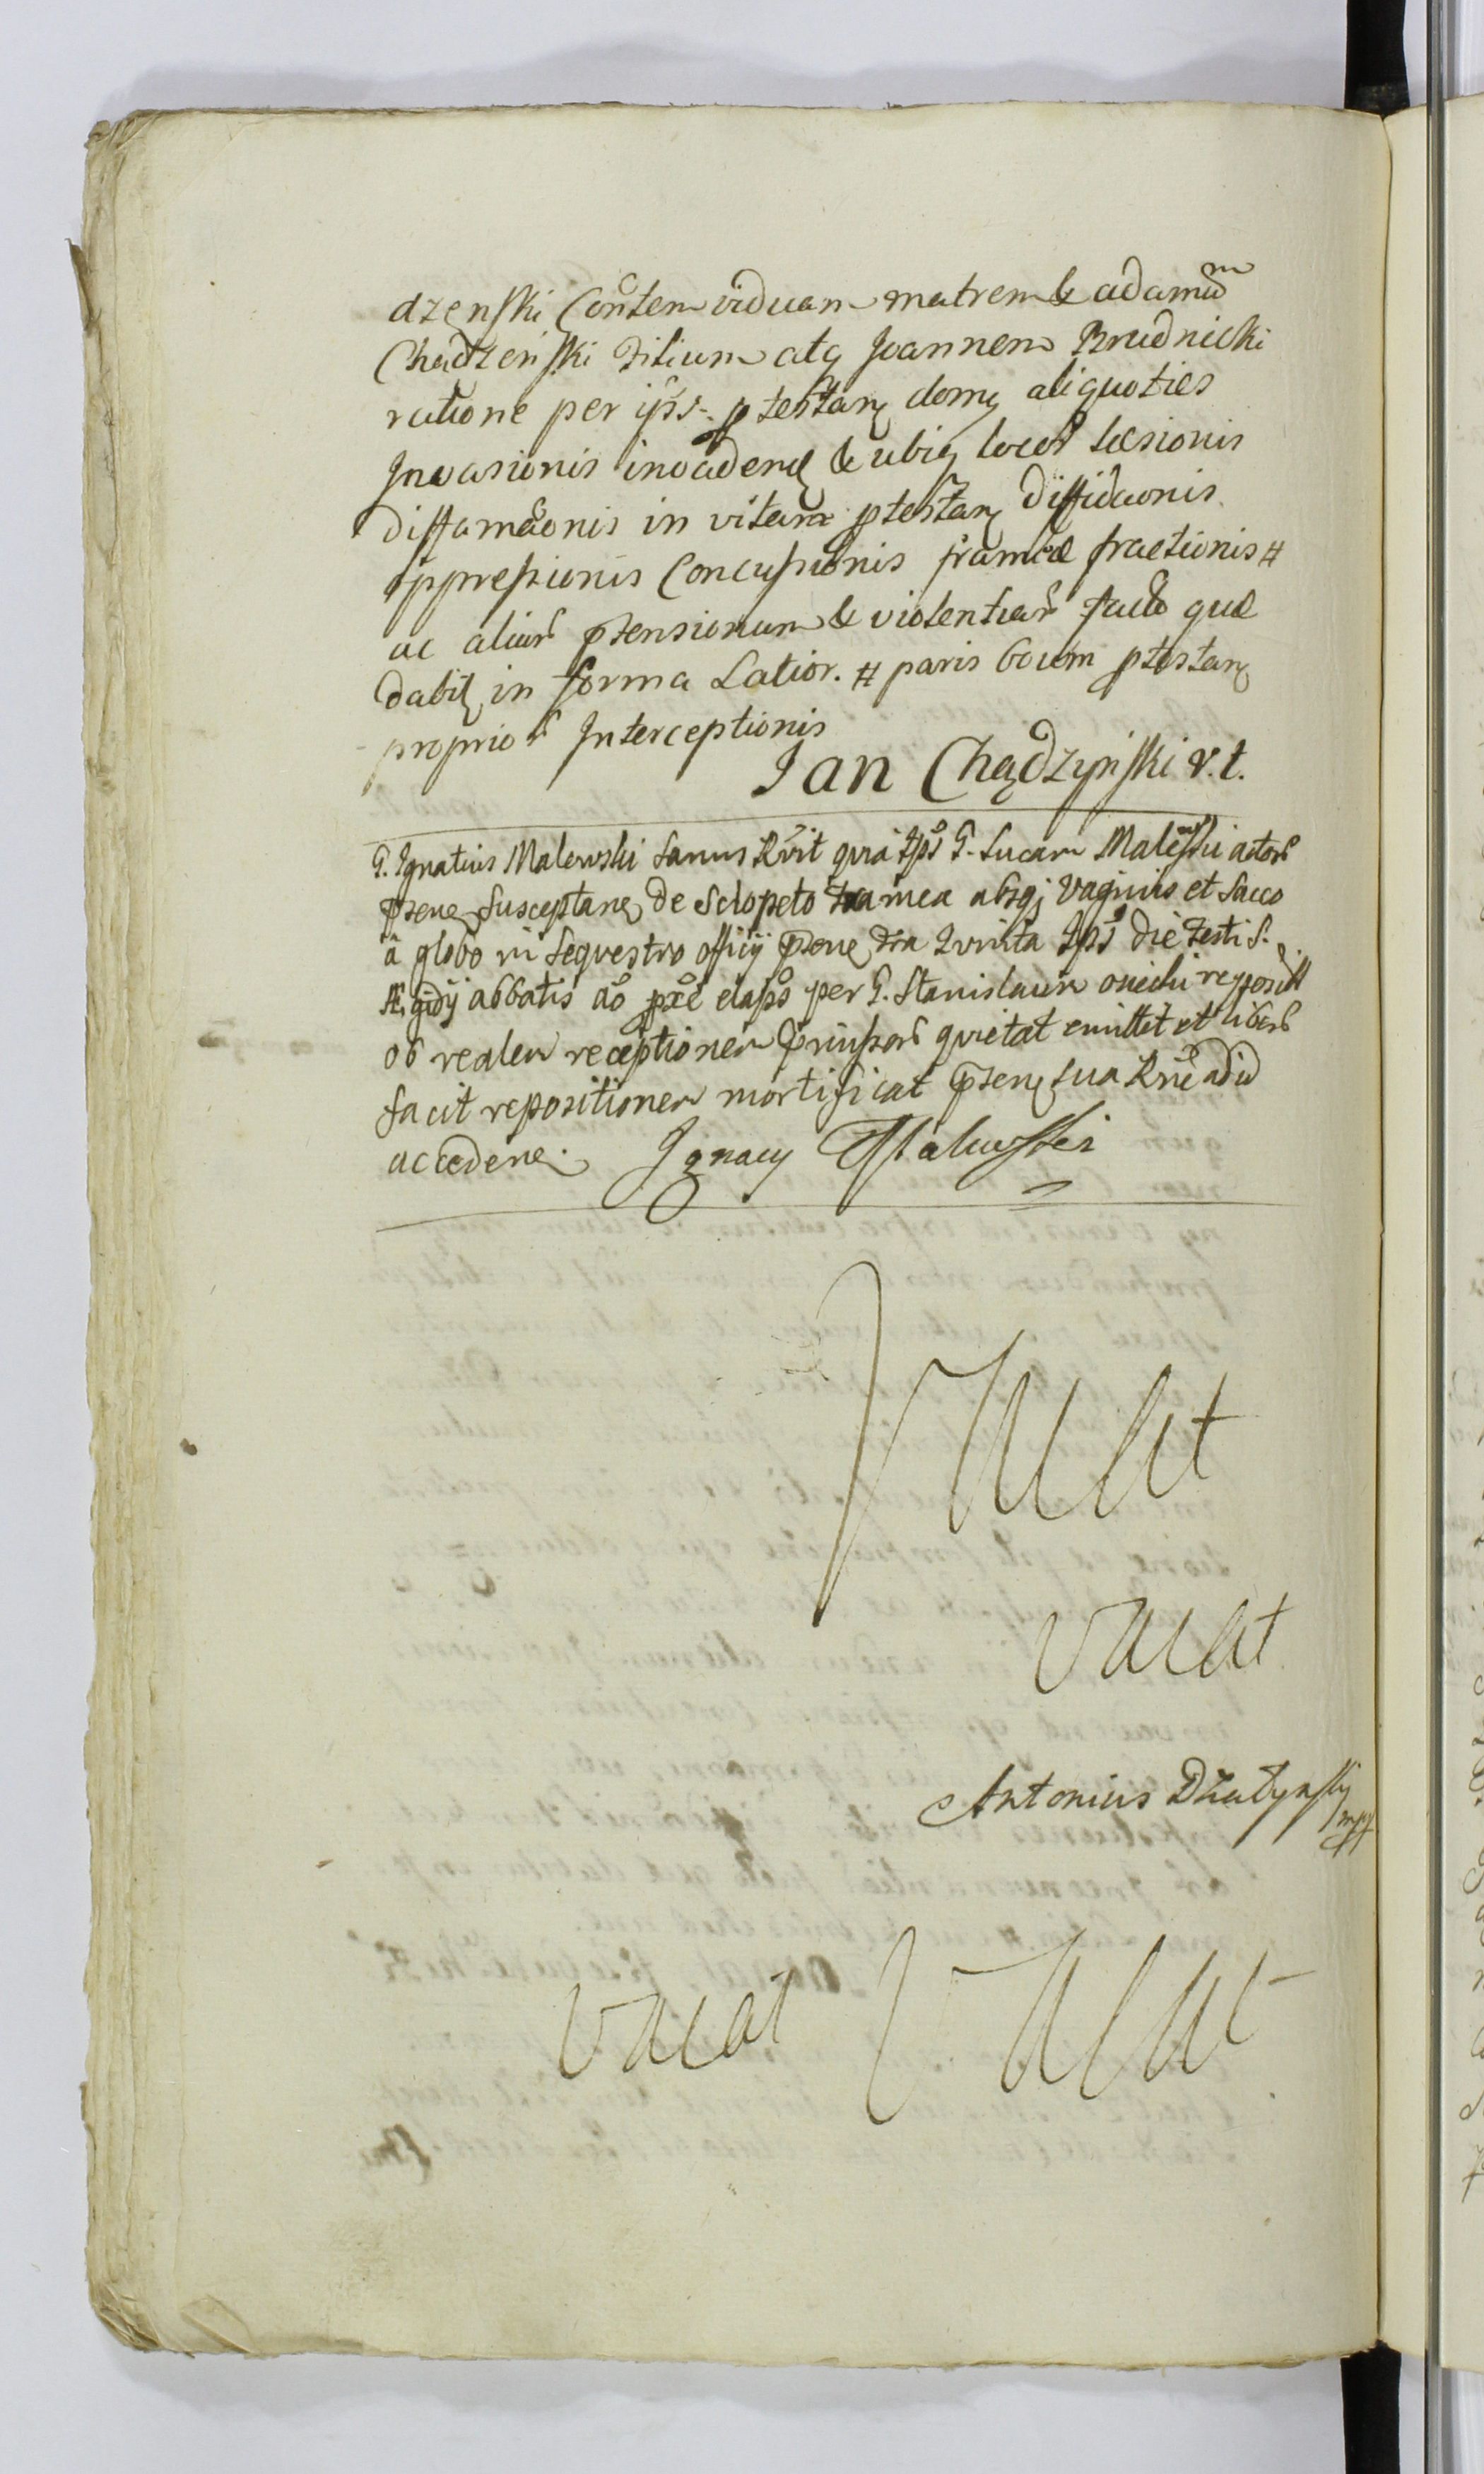 dzenski Contem viduam matrem & adamum
Chądzenski Filium atq Joannem Brudnicki
ratione per ips. ptestan domq aliquoties
Invasionis invadend & ubiq locor læsionis
diffamaonis in vitam ptestanq Diffidaonis
oppressionis Concussionis frameæ fractionis #
ac aliar ptensionum & violentiar facto quæ
dabit in forma Latior. # paris boum ptestanq
proprior Interceptionis
Jan Chądzyński v.t.
G. Ignatius Malewski sanus Rvit quia Ips G. Lucam Malewski actor
pzens susceptanq de Sclopeto framea absq Vaginis et Sacco
â globo in Sequestro officij pzene fria quinta Ips die Festi S.
Ægidij abbatis ao pxe elapso per G. Stanislaum reposit
ob realem receptionem quietat emittit et liber
facit repositionem mortificat pzen sua Rne ad id
accedene. Ignacy Malewski
Vacat
Vacat
Antonius Działynski mpp
Vacat Vacat